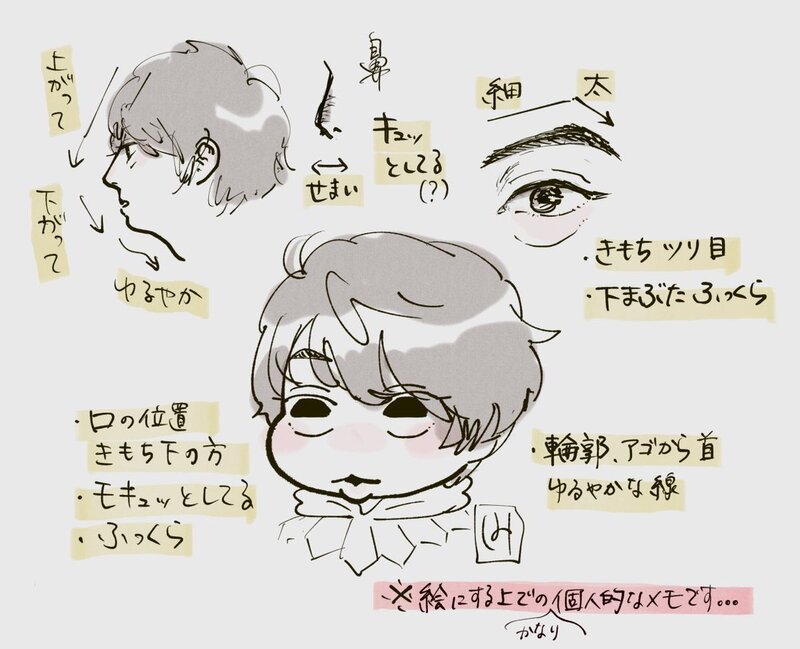 上がって
下がって
ゆるやか
鼻
せまい
キュッ
としてる
(?)
細
太
・きもちツリ目
・下まぶたふっくら
・口の位置
きもち下の方
・モキュッとしてる
・ふっくら
・輪郭、アゴから首
ゆるやかな線
※絵にする上での個人的なメモです…
かなり